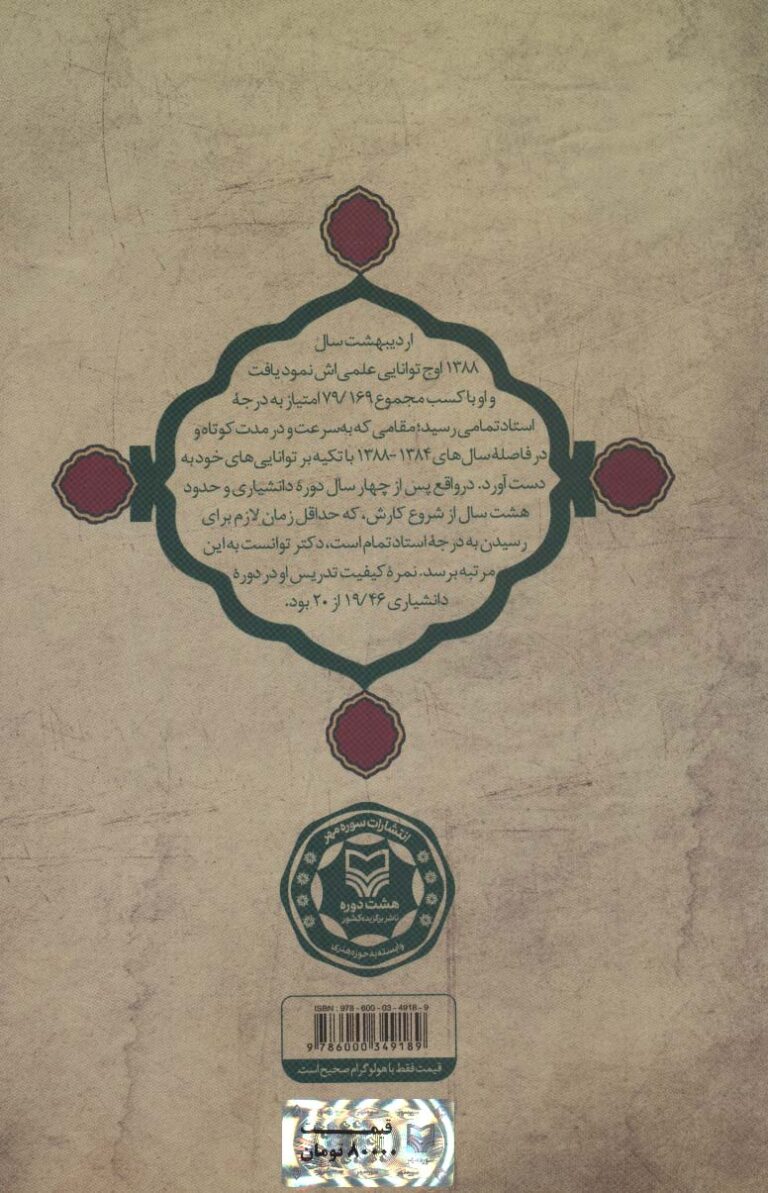 اردیبهشت سال
۱۳۸۸ اوج توانایی علمی‌اش نمود یافت
و او با کسب مجموع ۷۹/۱۶۹ امتیاز به درجهٔ
استاد تمامی رسید؛ مقامی که به‌سرعت و در مدت کوتاه و
در فاصلهٔ سال‌های ۱۳۸۴ -۱۳۸۸ با تکیه بر توانایی‌های خود به
دست آورد. درواقع پس از چهار سال دورهٔ دانشیاری و حدود
هشت سال از شروع کارش، که حداقل زمان لازم برای
رسیدن به درجهٔ استاد تمام است، دکتر توانست به این
مرتبه برسد. نمرهٔ کیفیت تدریس او در دورهٔ
دانشیاری ۱۹/۴۶ از ۲۰ بود.
انتشارات سوره مهر
هشت دوره
ناشر برگزیده کشور
وابسته به حوزه هنری
ISBN : 978 - 600 - 03 - 4918 - 9
9 786000 349189
قیمت فقط با هولوگرام صحیح است.
قیمت
۸۰۰۰۰ تومان